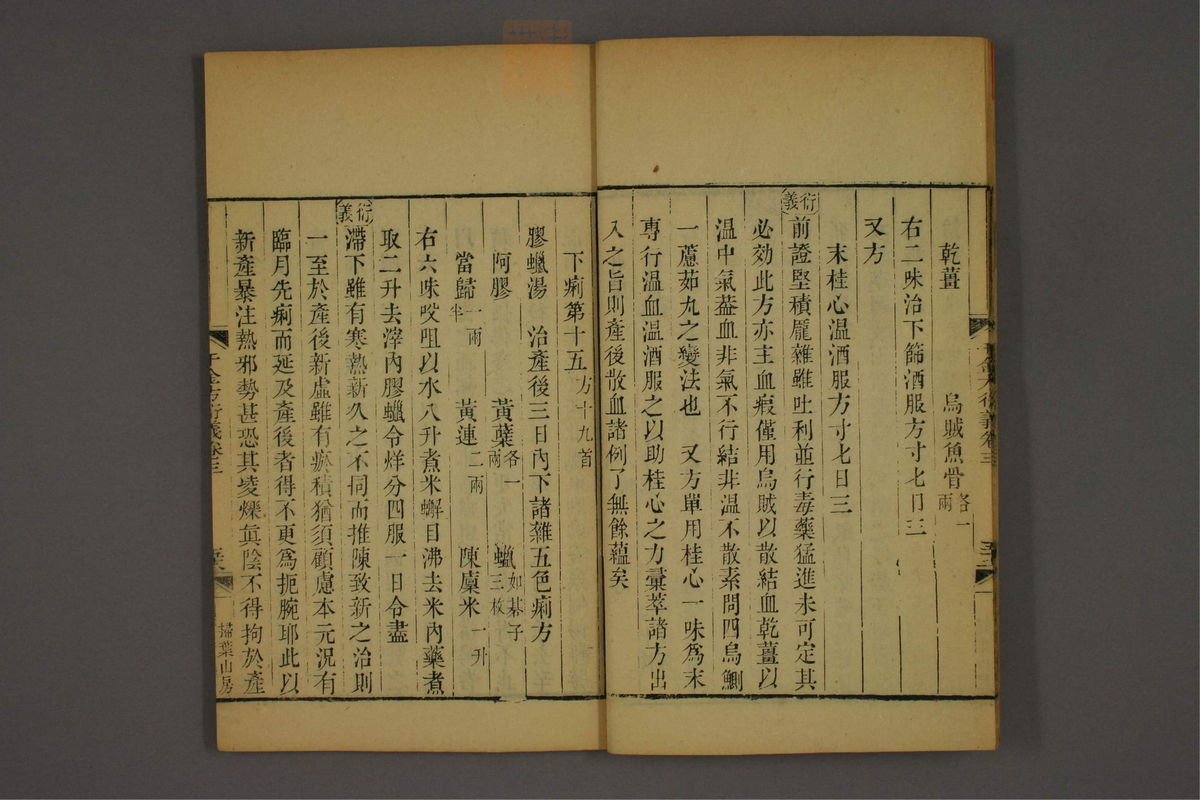 乾薑 烏賊魚骨各一兩
右二味治下篩酒服方寸匕日三
又方
末桂心温酒服方寸匕日三
衍義 前證堅積龐雜雖吐利並行毒藥猛進未可定其
必効此方亦主血瘕僅用烏賊以散結血乾薑以
温中氣葢血非氣不行結非温不散素問四烏鰂
一蘆茹丸之變法也 又方單用桂心一味為末
專行温血温酒服之以助桂心之力彚萃諸方出
入之旨則產後散血諸例了無餘蘊矣
下痢第十五方十九首
膠蠟湯 治產後三日內下諸雜五色痢方
阿膠 黃蘗各一兩 蠟如棊子三枚
當歸一兩半 黃連二兩 陳廩米一升
右六味㕮咀以水八升煮米蠏目沸去米內藥煮
取二升去滓內膠蠟令烊分四服一日令盡
衍義 滯下雖有寒熱新久之不同而推陳致新之治則
一至於產後新虛雖有瘀積猶須顧慮本元況有
臨月先痢而延及產後者得不更為扼腕耶此以
新產暴注熱邪勢甚恐其凌爍眞陰不得拘於產
千金方衍義卷三
掃葉山房